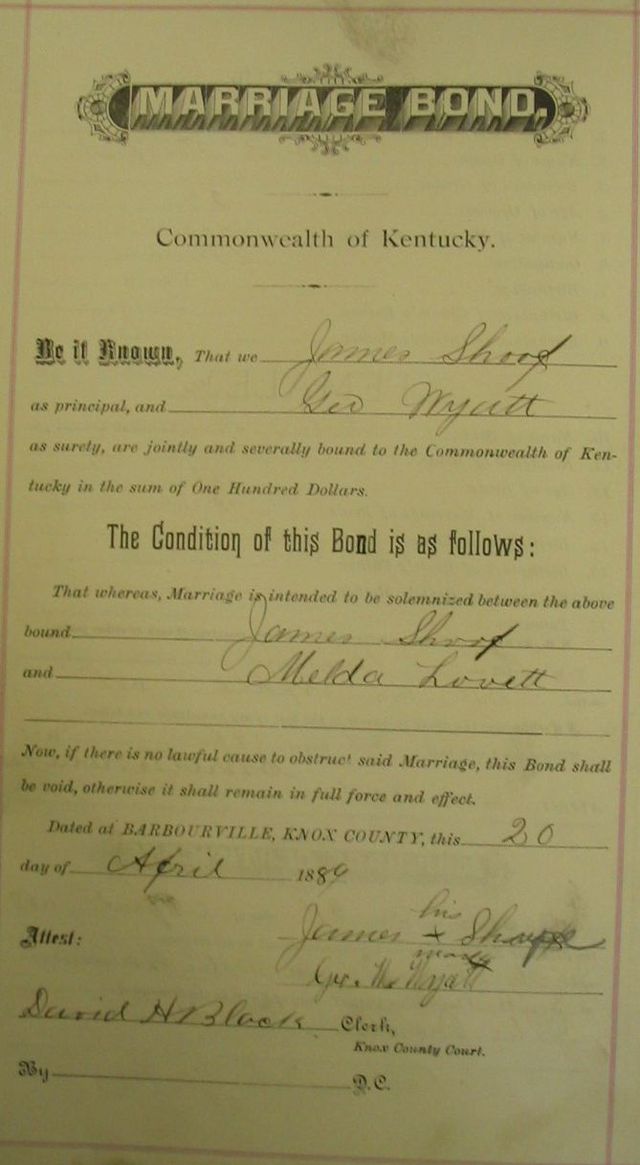 MARRIAGE BOND,
Commonwealth of Kentucky.
Be it Known, That we James Shoop
as principal, and Geo Wyatt
as surety, are jointly and severally bound to the Commonwealth of Ken-
tucky in the sum of One Hundred Dollars.
The Condition of this Bond is as follows:
That whereas, Marriage is intended to be solemnized between the above
bound James Shoop
and Melda Lovett
Now, if there is no lawful cause to obstruct said Marriage, this Bond shall
be void, otherwise it shall remain in full force and effect.
Dated at BARBOURVILLE, KNOX COUNTY, this 20
day of April 1889
his
Attest: James +
mark
Wyatt
David H Black Clerk,
Knox County Court.
By D.C.